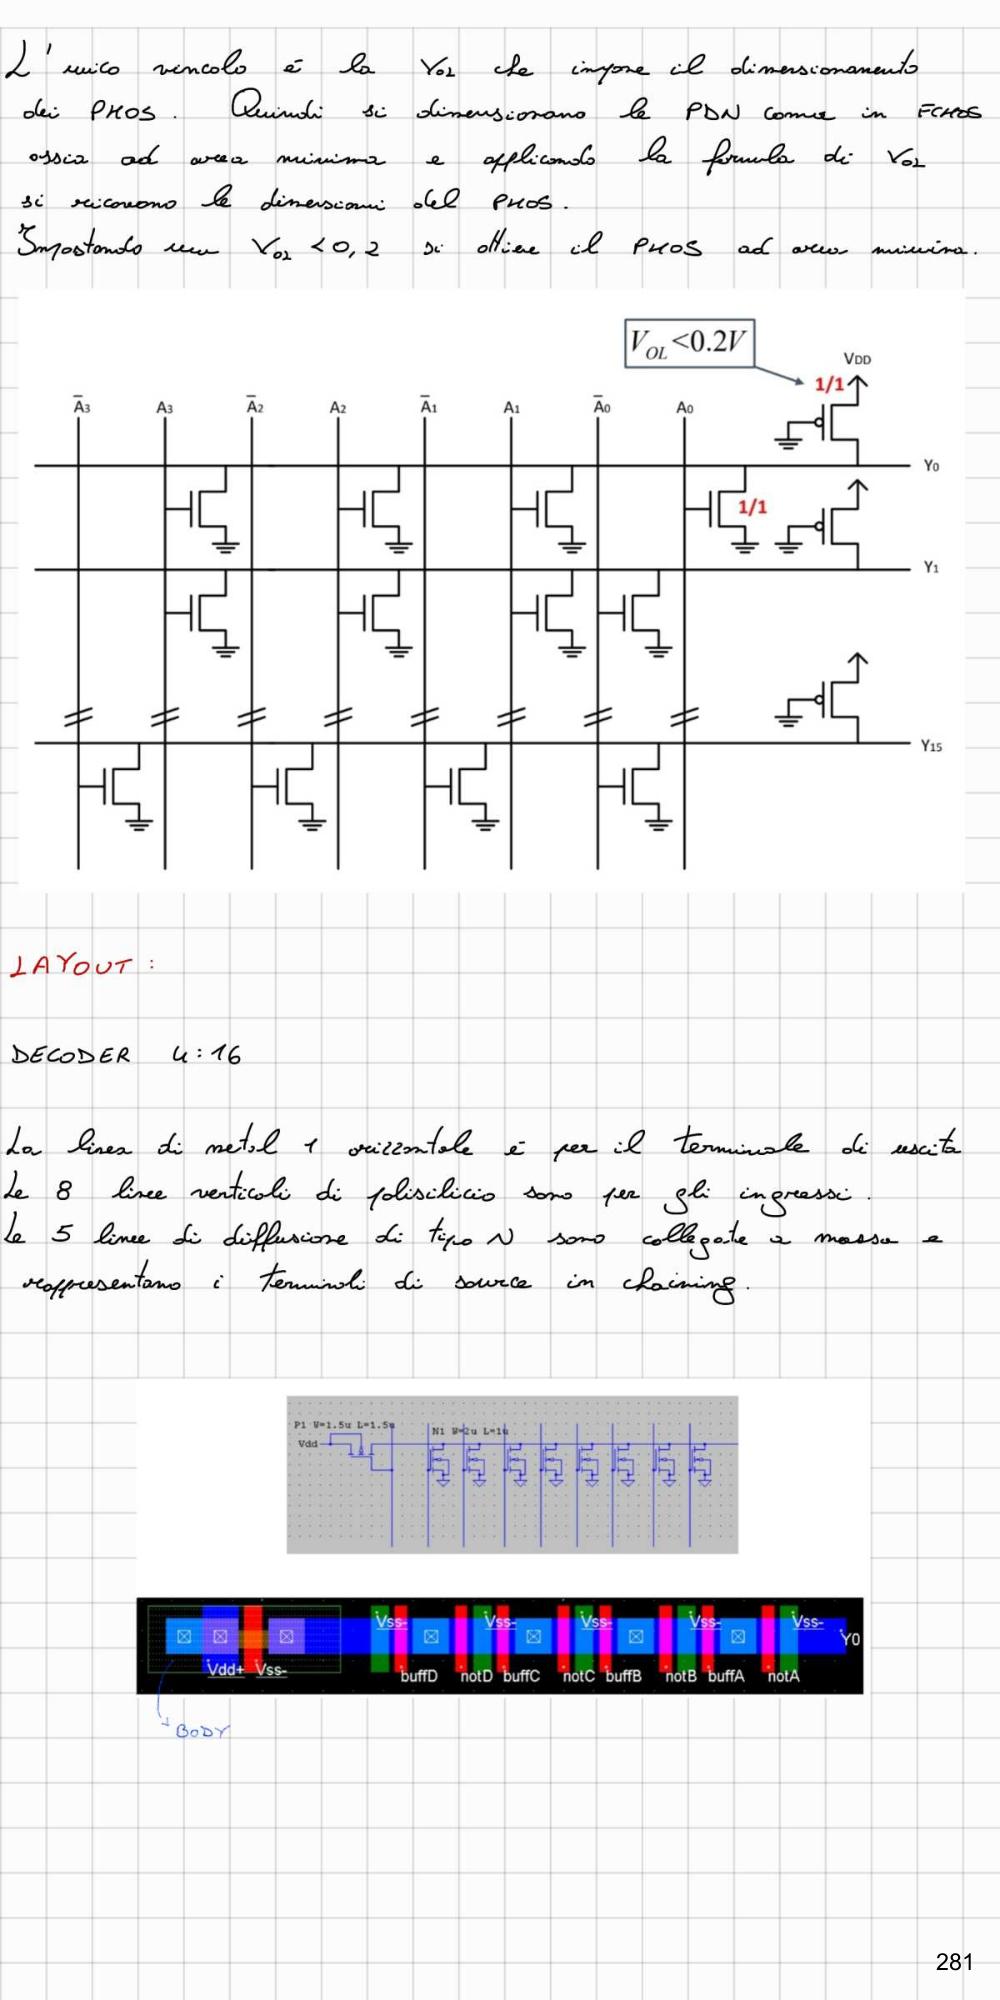 L'unico vincolo è la VOL che impone il dimensionamento
dei PMOS. Quindi si dimensionano le PDN come in FCMOS
ossia ad area minima e applicando la formula di VOL
si ricavano le dimensioni del PMOS.
Impostando una VOL <0,2 si ottiene il PMOS ad area minima.
VOL <0.2V
VDD
1/1
A̅3 A3 A̅2 A2 A̅1 A1 A̅0 A0
Y0
1/1
Y1
Y15
LAYOUT :
DECODER 4:16
La linea di metal 1 orizzontale è per il terminale di uscita
Le 8 linee verticali di polisilicio sono per gli ingressi.
Le 5 linee di diffusione di tipo N sono collegate a massa e
rappresentano i terminali di source in chaining.
P1 W=1.5u L=1.5u
N1 W=2u L=1u
Vdd
Vss- Vss- Vss- Vss- Vss-
Y0
Vdd+ Vss- buffD notD buffC notC buffB notB buffA notA
BODY
281